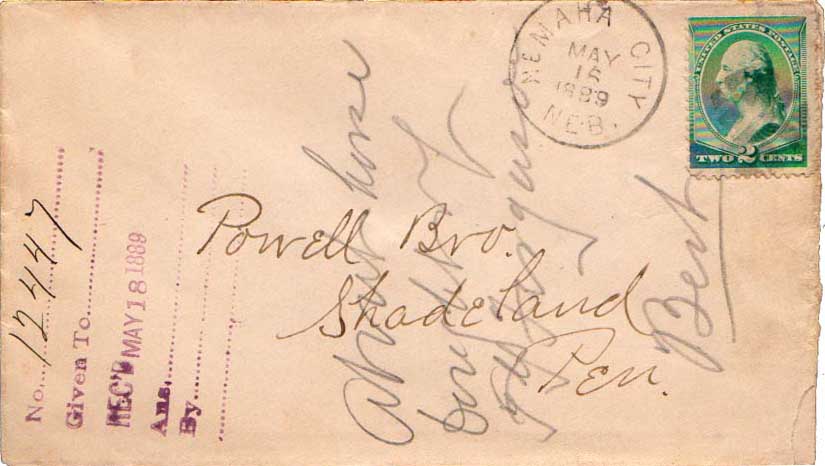 NEMAHA CITY
MAY
16
1889
NEB.
UNITED STATES POSTAGE
TWO 2 CENTS
Powell Bro.
Shadeland
Pen.
No. 12447
Given To
REC'D MAY 18 1889
Ans.
By
About horse
Bert